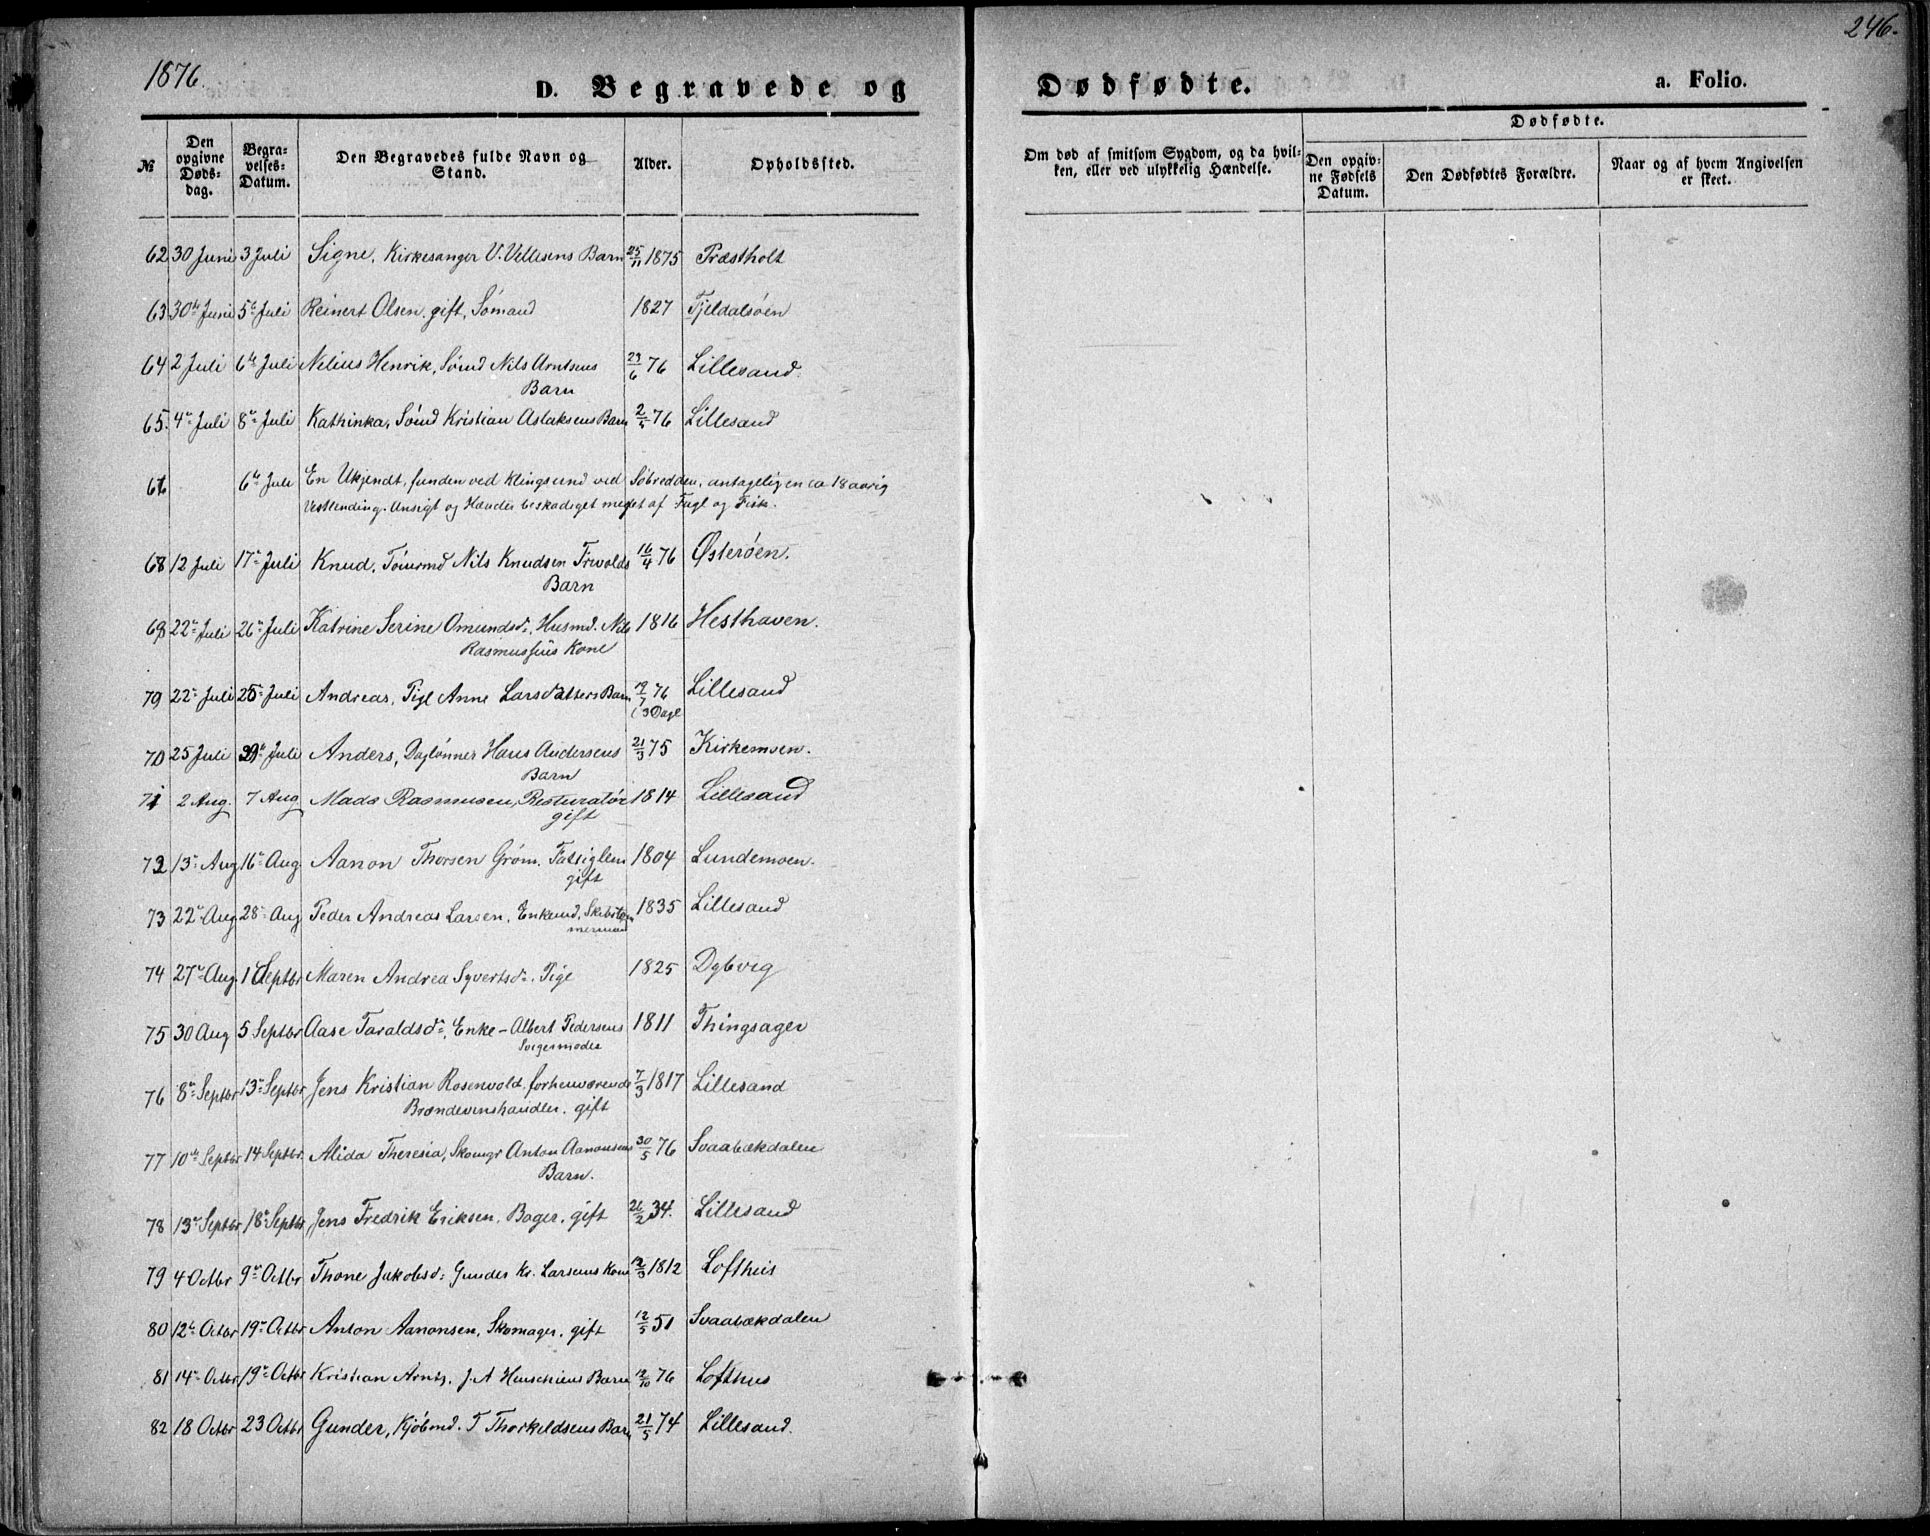 246.
1876.
D. Begravede og Dødfødte. a. Folio.
№
Den opgivne Døds-dag.
Begra-velses-Datum.
Den Begravedes fulde Navn og Stand.
Alder.
Opholdssted.
Om død af smitsom Sygdom, og da hvil-ken, eller ved ulykkelig Hændelse.
Dødfødte.
Den opgiv-ne Fødsels Datum.
Den Dødfødtes Forældre.
Naar og af hvem Angivelsen er skeet.
62 30 Juni 3 Juli Signe, Kirkesanger V. Vellesens Barn 25/11 1875 Præstholt
63 30te Juni 5te Juli Reinert Olsen, gift, Sømand 1827 Tjeldalsøen
64 2 Juli 6te Juli Nilius Henrik, Sømd Nils Arntsens 23/6 76 Lillesand.
Barn
65. 4de Juli 8de Juli Kathinka, Sømd Kristian Aslaksens Barn 2/5 76 Lillesand
6te Juli En Ukjendt, funden ved Klingsund ved Søbredden, antagelig en ca 18 aarig
Vestlending. Ansigt og Hænder beskadiget meget af Fugl og Fisk.
68 12 Juli 17de Juli Knud, Tømmd Nils Knudsen Trwolds 16/4 76 Østerøen.
Barn
69 22de Juli 26de Juli Katrine Serine Omundsdr, Husmd. Nils 1816 Hesthaven.
Rasmussens Kone
79 22de Juli 25de Juli Andreas, Pige Anne Larsdatters Barn 19/7 76 Lillesand
(3 Dage
70 25 Juli Juli Anders, Daglønner Hans Andersens 21/3 75 Kirkemoen.
Barn
71 2 Aug. 7 Aug Mads Rasmusen, Resturatør 1814 Lillesand
gift
72 13de Aug 16de Aug Aanon Thorsen Grøm. Fattiglem 1804 Lundemoen.
gift
73 22de Aug 28de Aug Peder Andreas Larsen, Enkemd, Skibstøm 1835 Lillesand
mermand
74 27de Aug. 1 Septbr Maren Andrea Syvertsdr. Pige 1825 Dybvig
75 30 Aug 5 Septbr Aase Taraldsdr, Enke - Albert Pedersens 1811 Thingsager
Svigermoder
76 8de Septbr 13de Septbr Jens Kristian Rosenvold, forhenværende 7/3 1817 Lillesand
Brændevinshandler, gift
77 10de Septbr 14 Septbr. Alida Theresia, Skomgr Anton Aanonsens 30/5 76 Svaabækdalen
Barn.
78 13de Septbr 18de Septbr Jens Fredrik Eriksen, Bager, gift 26/2 34. Lillesand
79 4 Octbr 9de Octbr Thone Jakobsdr Gunder Kr. Larsens Kone 12/3 1812 Lofthus
80 12te Octbr 19de Octbr Anton Aanonsen, Skomager, gift 12/5 51 Svaabækdalen
81 14de Octbr 19de Octbr Kristian Arntz, J. A Barn 12/10 76 Lofthus
82 18 Octbr 23 Octbr Gunder, Kjøbmd. T Thorkildsens Barn 21/5 74 Lillesand.